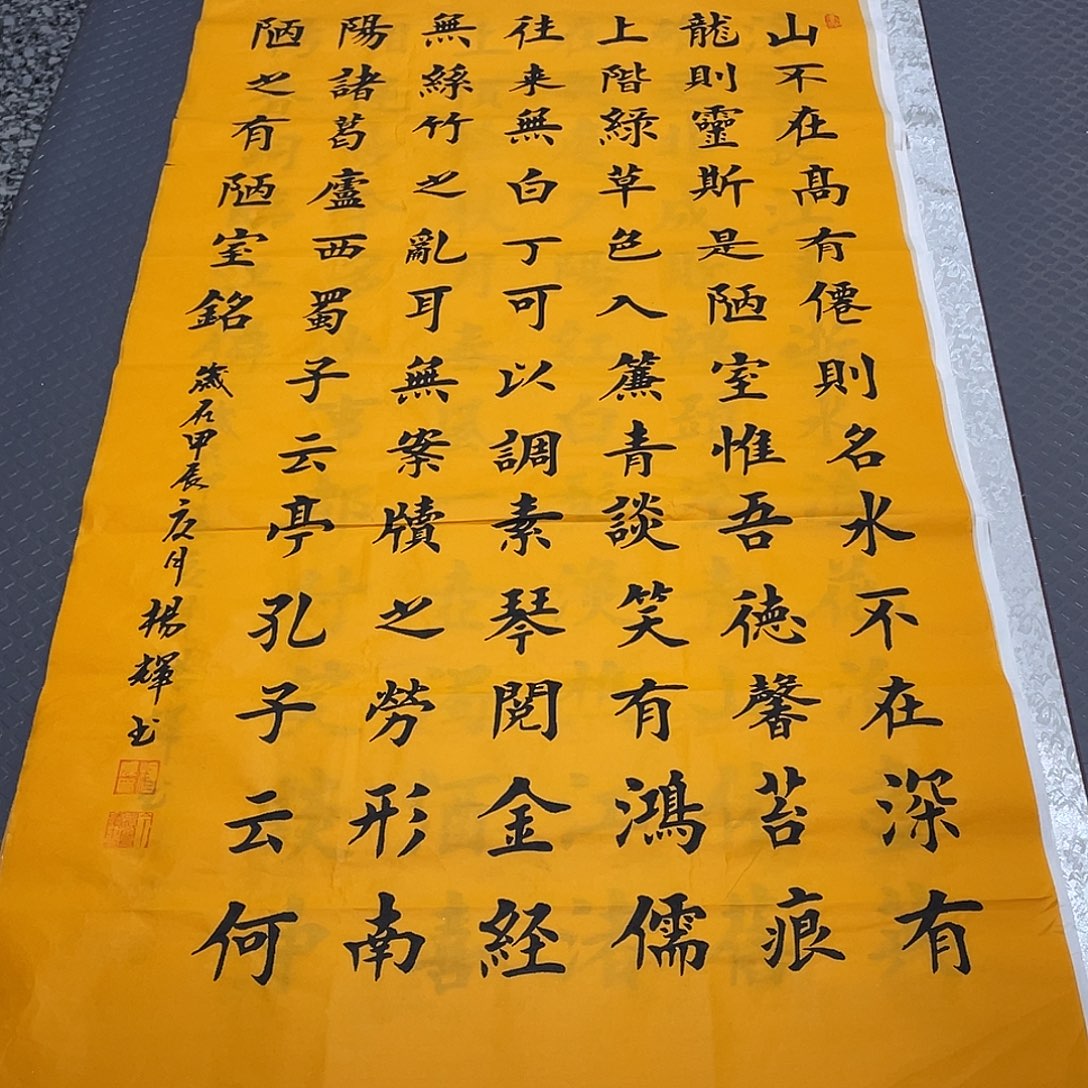 山不在髙有僊則名水不在深有
龍則靈斯是陋室惟吾徳馨苔痕
上階綠草色入簾青談笑有鴻儒
往来無白丁可以調素琴閱金経
無絲竹之亂耳無案牘之勞形南
陽諸葛廬西蜀子云亭孔子云何
陋之有陋室銘
歲在甲辰月楊輝书